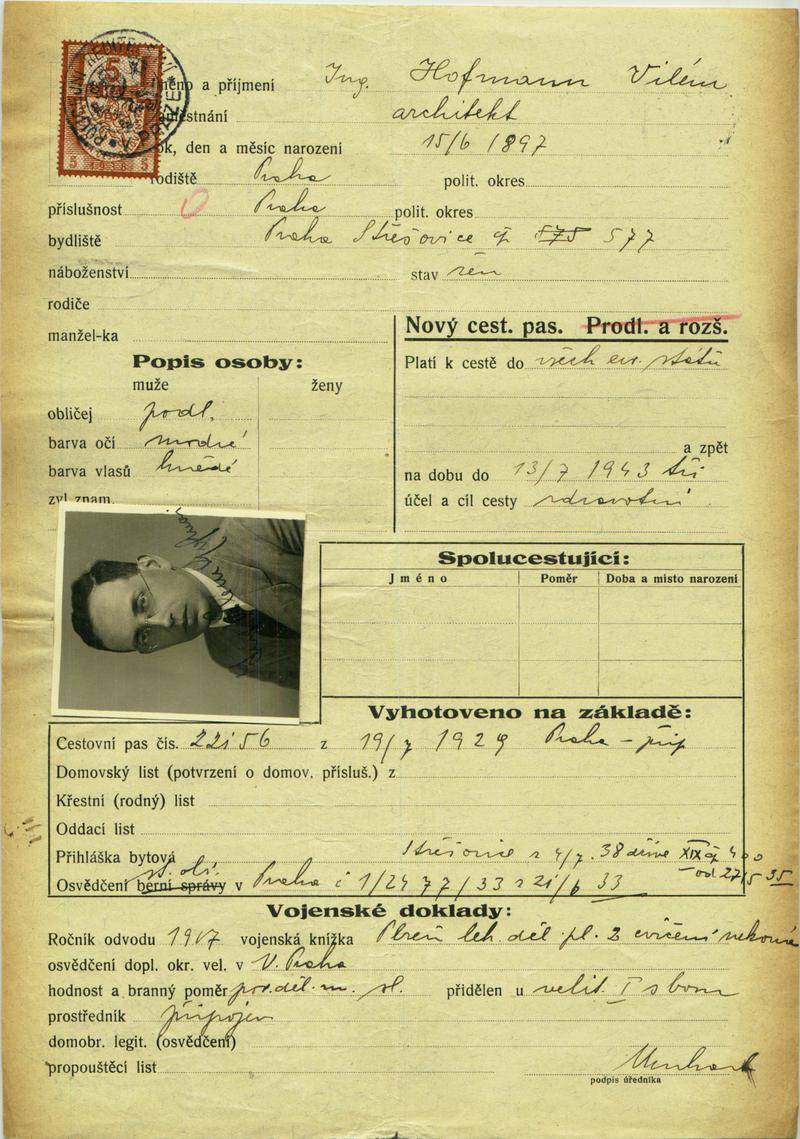 Jméno a příjmení Ing. Hofmann Vilém
zaměstnání architekt
rok, den a měsíc narození 15/6 1897
rodiště Praha polit. okres
příslušnost Praha polit. okres
bydliště Praha Střešovice čp 575 577
náboženství stav žen
rodiče
manžel-ka
Nový cest. pas. Prodl. a rozš.
Platí k cestě do všech evr. států
a zpět
na dobu do 13/7 1943 tři
účel a cíl cesty zdravotní
Popis osoby:
muže ženy
obličej podl.
barva očí modré
barva vlasů hnědé
zvl znam.
Spolucestující:
Jméno Poměr Doba a místo narození
Vyhotoveno na základě:
Cestovní pas čís. z 19/7 1929 Praha
Domovský list (potvrzení o domov. přísluš.) z
Křestní (rodný) list
Oddací list
Přihláška bytová Střešovice z 4/7. 38 dříve XIX
od 27/5 35
st. obč.
Osvědčení berní správy v Praha č 1/2477/33 z 21/6 33
Vojenské doklady:
Ročník odvodu 1917 vojenská knížka Plzeň leh. děl. pl. 2 cvičení nekoná
osvědčení dopl. okr. vel. v V. Praha
hodnost a branný poměr por. děl. m. sl. přidělen u velit. I sboru
prostředník připojen
domobr. legit. (osvědčení)
propouštěcí list
podpis úředníka
5
5 1938 5